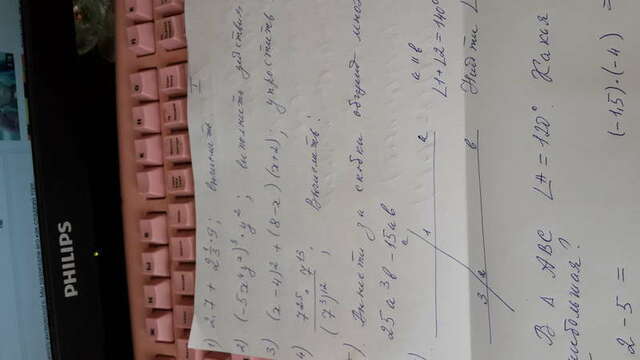 PHILIPS
I
1) 2,7 + 2 1/3 · 9; вычислить
2) (-5x⁴y²)³ · y²; выполнить действия
3) (x-4)² + (8-x)(x+2); упростить
4) 7²⁵ · 7¹³ / (7³)¹² ; Вычислить:
5). Вынести за скобки общий множ
25a³b - 15ab
c
1 a a || b
∠1+∠2 = 140°
3 2 b Найти ∠
В Δ ABC ∠A = 120°. Какая
наибольшая?
2 - 5 = (-1,5)·(-4) =